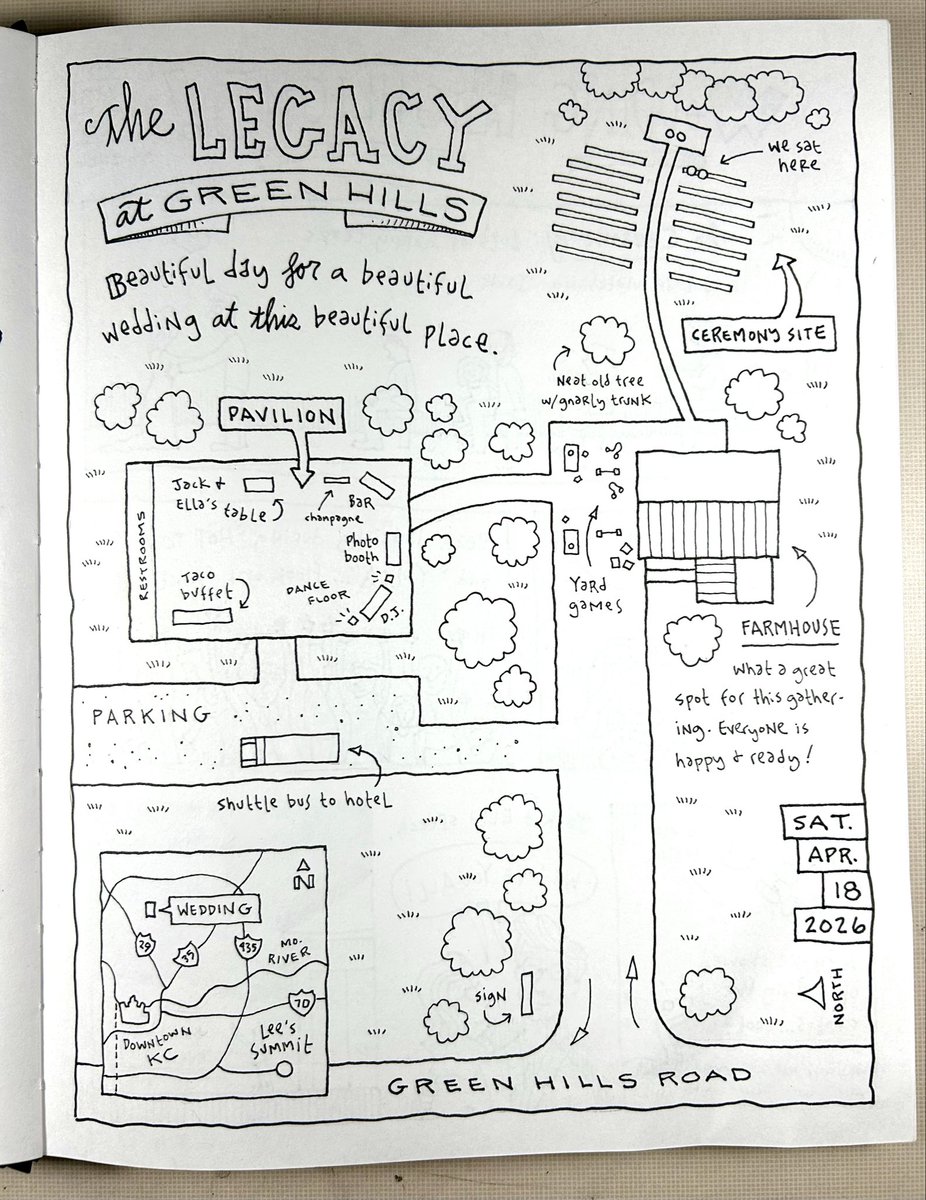 the LEGACY
at GREEN HILLS
Beautiful day for a beautiful
wedding at this beautiful place.
we sat
here
CEREMONY SITE
Neat old tree
w/gnarly trunk
PAVILION
RESTROOMS
Jack &
Ella's
table
champagne
BAR
Photo
booth
Taco
buffet
DANCE
FLOOR
D.J.
Yard
games
FARMHOUSE
What a great
spot for this gather-
ing. Everyone is
happy & ready!
PARKING
shuttle bus to hotel
SAT.
APR.
18
2026
NORTH
N
WEDDING
29
35
435
MO.
RIVER
70
DOWNTOWN
KC
Lee's
Summit
sign
GREEN HILLS ROAD